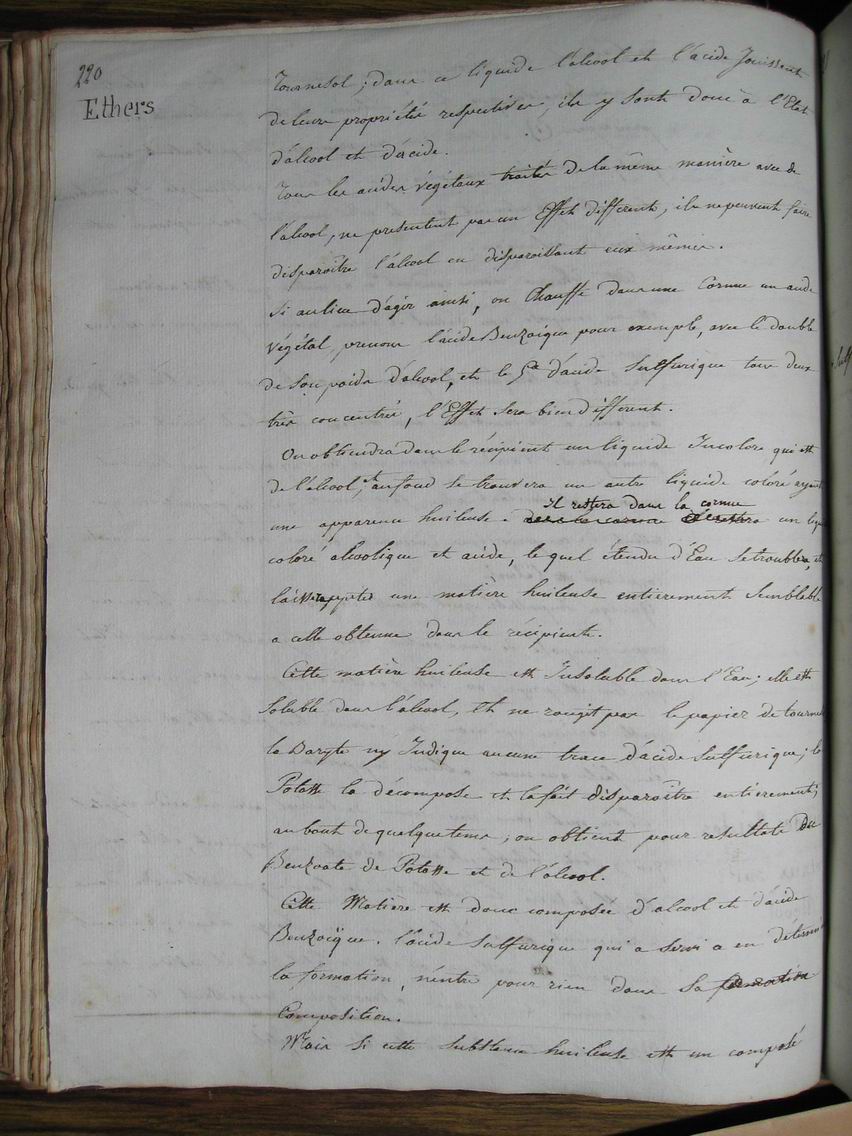 220
Ethers
Tournesol ; dans ce liquide l'alcool et l'acide Jouissent
de leurs propriétés respectives, ils y sont donc à l'Etat
d'alcool et d'acide.
Tous les acides végétaux traités de la même manière avec de
l'alcool, ne presentent pas un Effet différent, ils ne peuvent faire
disparoître l'alcool en disparoissant eux mêmes.
Si au lieu d'agir ainsi, on Chauffe dans une Cornue un acide
végétal, prenons l'acide Benzoique pour exemple, avec le double
de son poids d'alcool, et le d'acide Sulfurique tous deux
très concentrés, l'Effet sera bien different.
On obtiendra dans le récipient un liquide Incolore qui est
de l'alcool, et au fond se trouvera un autre liquide coloré ayant
une apparence huileuse. il restera dans la cornue un
coloré alcoolique et acide, lequel étendu d'Eau se troublera, et
une matière huileuse entierement semblable
a celle obtenue dans le récipient.
Cette matière huileuse est Insoluble dans l'Eau ; elle est
soluble dans l'alcool, Et ne rougit pas le papier de
la Baryte ny Indique aucune trace d'acide sulfurique ; la
Potasse la décompose et la fait disparoître entierement ;
au bout de quelque tems ; on obtient pour resultats Du
Benzoate de Potasse et de l'alcool.
Cette Matière est donc composée d'alcool et d'acide
Benzoïque. l'acide sulfurique qui a servi a en
la formation, n'entre pour rien dans sa formation
Composition.
Mais si cette substance huileuse est un composé